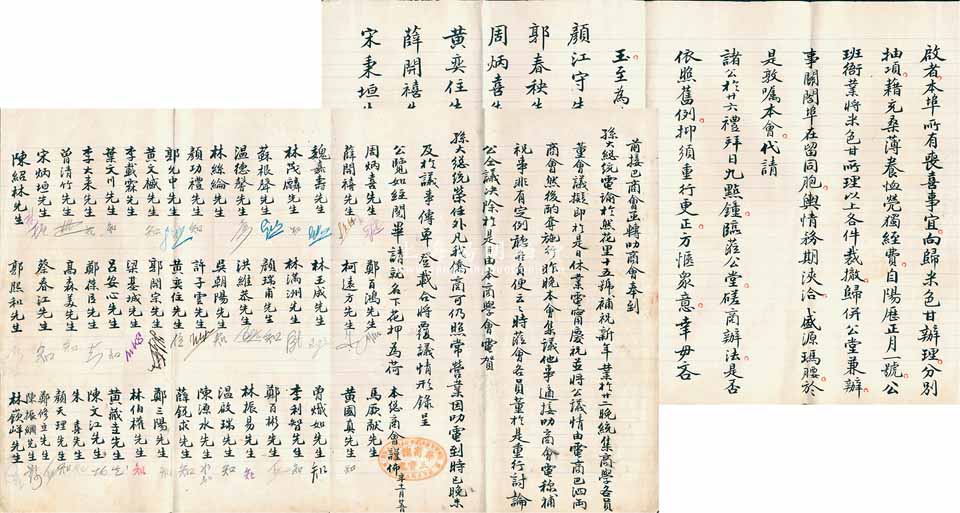 啟者本埠所有喪喜事宜向歸米色甘辦理分別
抽項藉充桑薄養恤煢獨經費自陽應正月一號公
班衙業將米色甘所理以上各件裁撤歸併公堂兼辦
事關閤埠在留同胞輿情務期浹洽盛源瑪腰於
是敦囑本會代請
諸公於廿六禮拜日九點鐘臨蒞公堂磋商辦法是否
依照舊例抑須重行更正方愜眾意幸毋吝
玉至為
顏江守先生
郭春秧先生
周炳喜先生
黃奕住先生
薛開禧先生
宋秉垣先生
前接巴商會並轉叻商會奉到
孫大總統電諭於然花里十五號補祝新年業於廿二晚統集商學各員
董會議擬即於是日休業電賀慶祝並將公議情由電商巴泗兩
商會然後酌奪施行昨晚本會集議他事適接叻商會電稱補
祝事非有定例聽其自便云云時蒞會各員董於是重行討論
公仝議決除於是日由本商學會電賀
孫大總統榮任外凡我僑商可仍照常營業因叻電到時已晚未
及於議事傳單登載合將覆議情形錄呈
公覽如經閱畢請就名下花押為荷
本總商會謹佈
周炳喜先生
鄭百鴻先生
馬厥猷先生
薛開禧先生
柯遠方先生
黃國真先生
魏嘉壽先生
林玉成先生
曾熾如先生
林茂麟先生
林滿洲先生
李利智先生
蘇根聲先生
顏瑞甫先生
鄭百彬先生
溫德聲先生
洪維恭先生
林振易先生
林綵綸先生
吳朝陽先生
溫啟瑞先生
顏功禮先生
許子雲先生
陳源水先生
郭光中先生
黃奕住先生
薛銳求先生
黃文彧先生
郭開宗先生
鄭三陽先生
李載霖先生
梁基城先生
林伯權先生
葉文川先生
呂安心先生
黃啟生先生
李大來先生
鄭保臣先生
陳文江先生
曾清竹先生
高森美先生
朱喜先生
宋炳垣先生
蔡春江先生
顏天理先生
陳經林先生
郭熙和先生
鄭修立先生
陳振綱先生
林欽峰先生